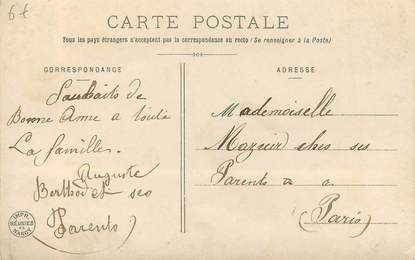 6f
CARTE POSTALE
Tous les pays étrangers n'acceptent pas la correspondance au recto (Se renseigner à la Poste)
CORRESPONDANCE
Souhaits de
Bonne Anne a toute
La familles
Auguste
Berthod et ses
Parents
IMPR.
RÉUNIES
DE
NANCY
ADRESSE
Mademoiselle
Mazeur ches ses
Parents a
(Paris)